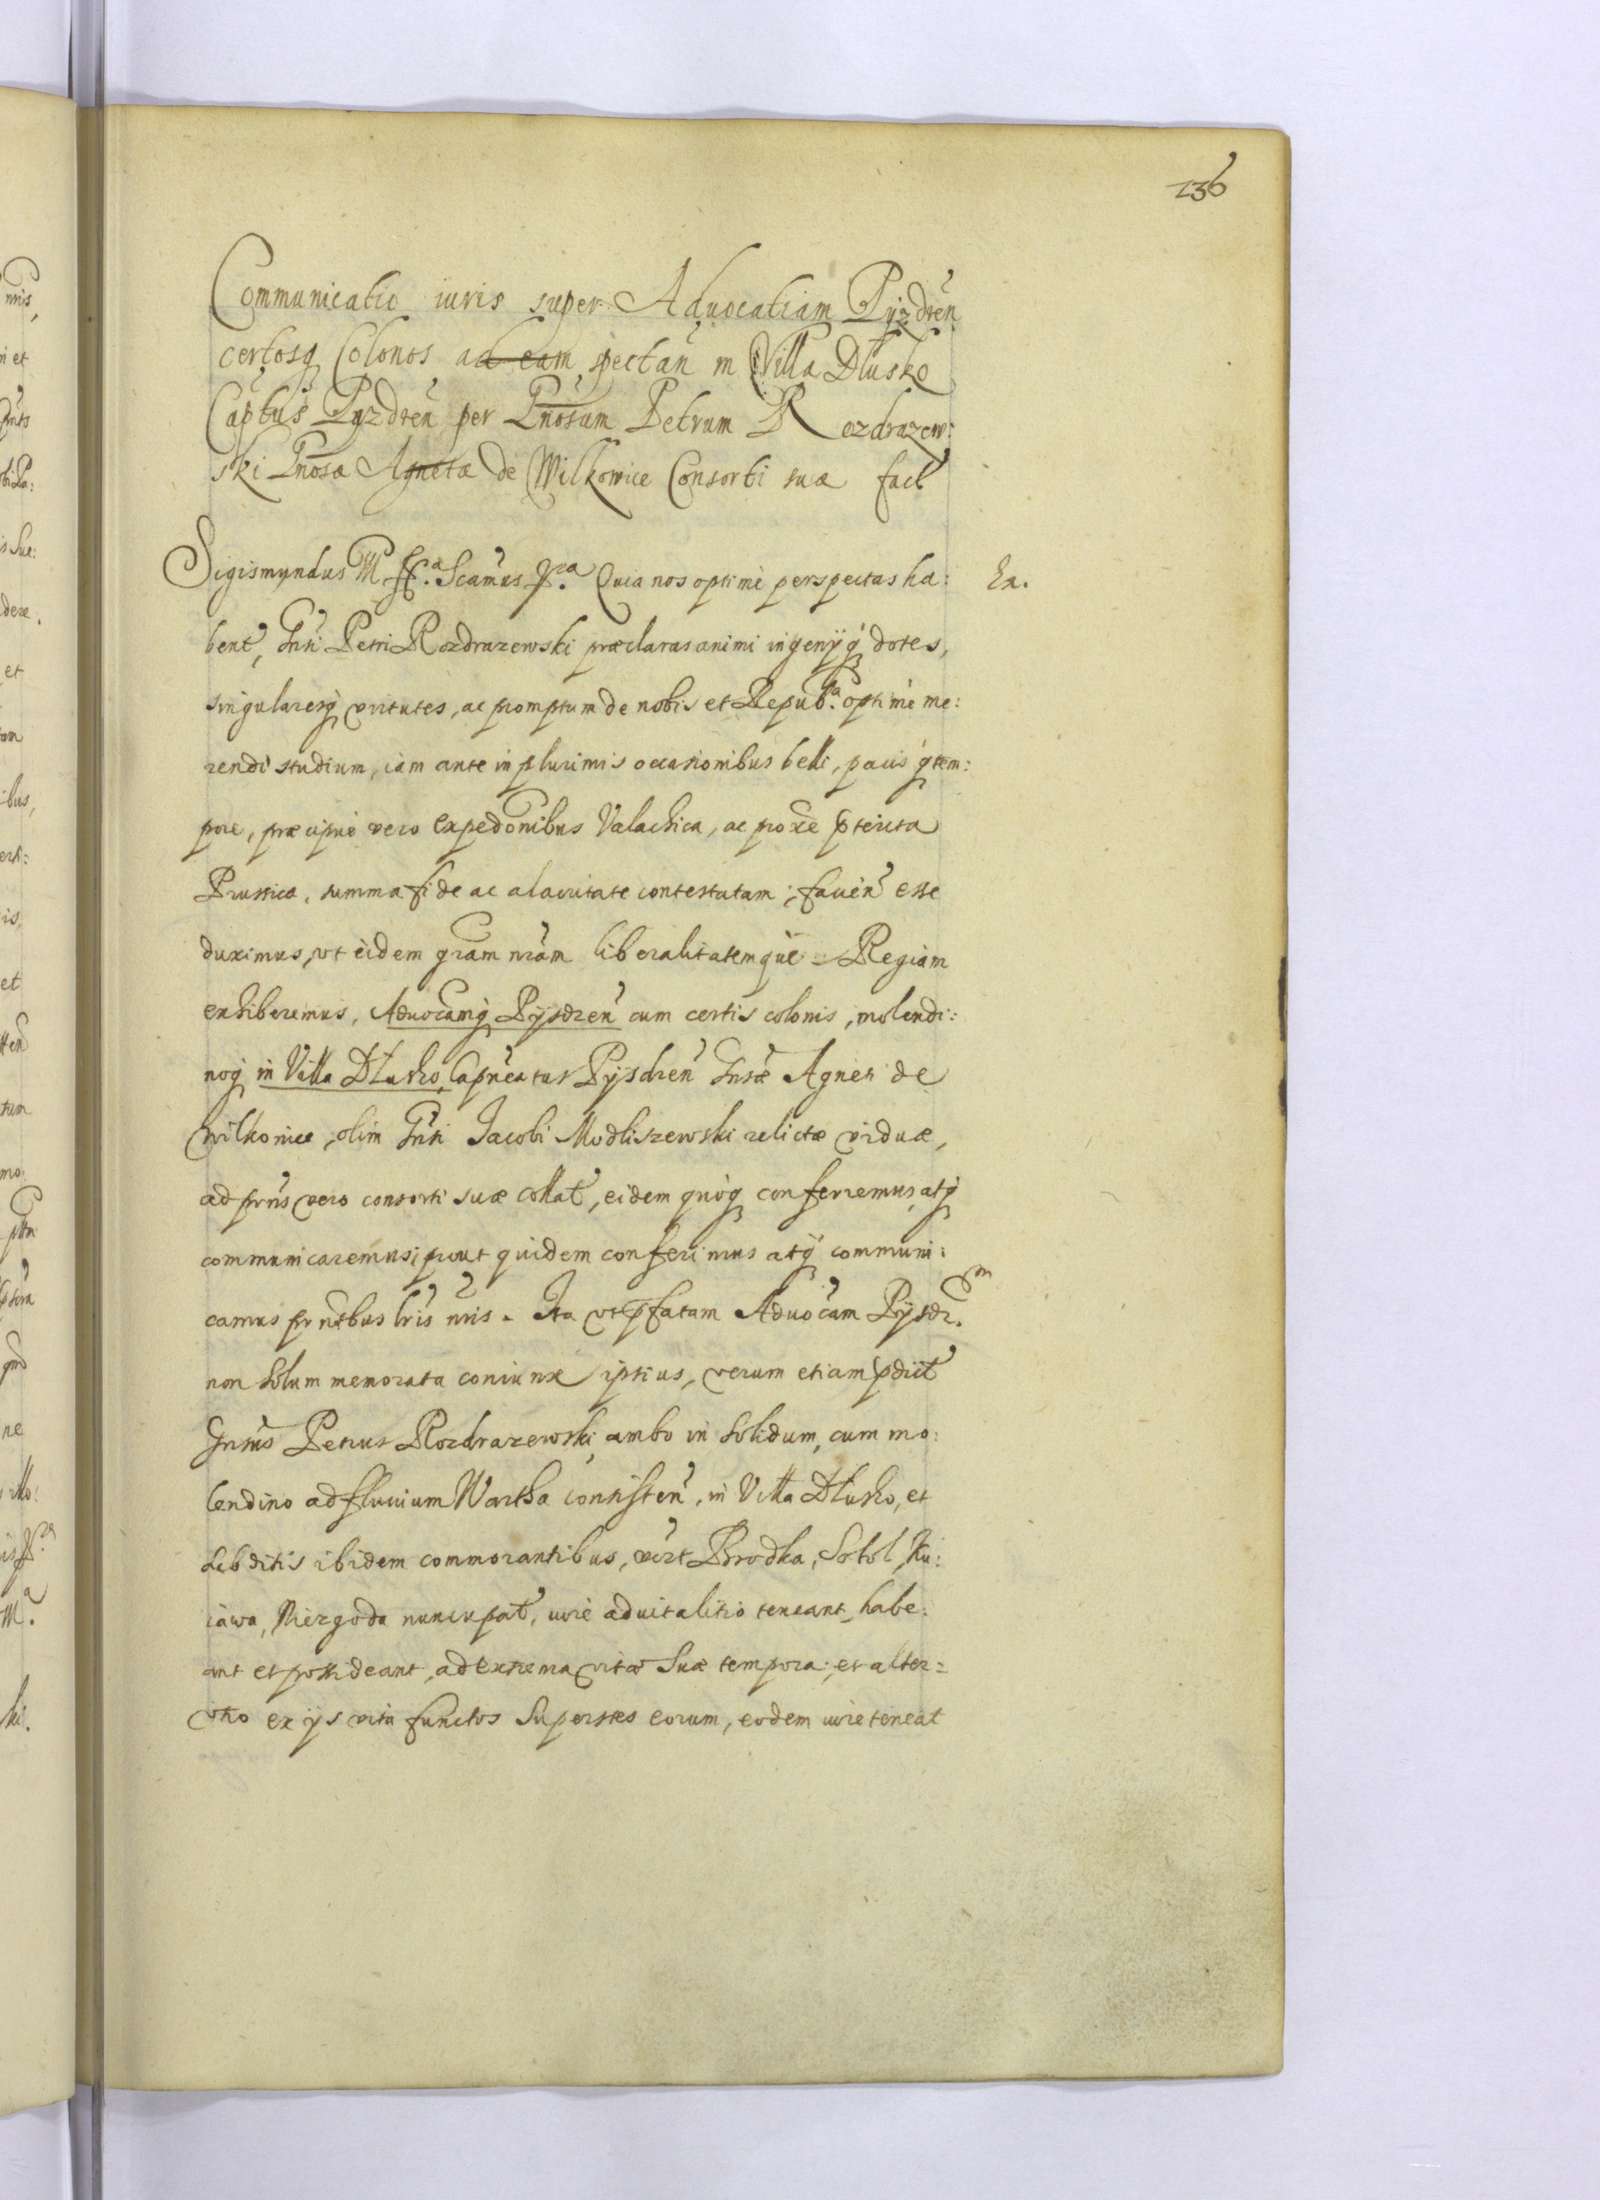 136
Communicatio iuris super Aduocatiam Pyzdren
certosq Colonos ad eam spectan in Villa Dłusko
Captus Pyzdren per Gnosum Petrum Rozdrazew:
ski Gnosæ Agnetæ de Wilkowice Consorti suæ fact
Sigismundus III etc.a Significamus etc. Quia nos optimè perspectas ha:
bent, Gnsi Petri Rozdrazewski præclaras animi ingenijq dotes,
singularesq virtutes, ac promptum de nobis et Repub.a optimè me:
rendi studium, iam ante in plurimis occasionibus belli, pacis q tem:
pore, præcipuè vero expedonibus Valachica, ac proxe pterita
Prussica, summa fide ac alacritate contestatam; facien esse
duximus, vt eidem gram nram liberalitatemque Regiam
exhiberemus, Aduocamq Pyzdren cum certis colonis, molendi:
noq in Villa Dłusko, Capneatus Pyzdren Gnsæ Agneti de
Wilkowice, olim Gnsi Jacobi Modliszewski relictæ viduæ,
ad prns vero consorti suæ collat, eidem quoq conferremus, atq
communicaremus; prout quidem conferimus atq communi:
camus prntbus lris nris. Ita vt pfatam Aduocam Pyzdr.m
non solum memorata coniunx ipsius, verum etiam pdict
Gnsus Petrus Rozdrazewski, ambo in solidum, cum mo:
lendino ad fluuium Wartha consisten, in Villa Dłusko, et
subditis ibidem commorantibus, vizt Brodka, Sokol, Ku:
iawa, Niezgoda nuncupat, iure aduitalitio teneant, habe:
ant et possideant, ad extrema vitæ suæ tempora; et alter:
vtro ex ijs vita functos superstes eorum, eodem iure teneat